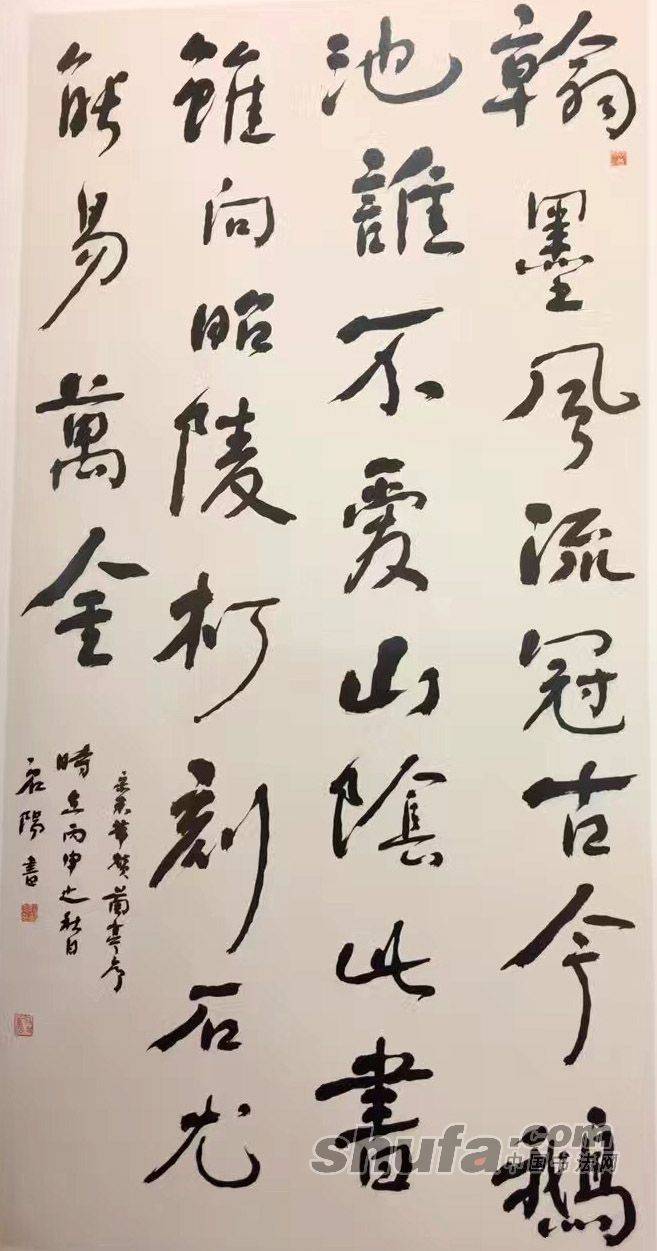 翰墨風流冠古今鵝
池誰不愛山陰此書
雖向昭陵朽刻石尤
能易萬金
蘭亭序
時在丙申之秋日
陽書
shufa.com
中国书法网